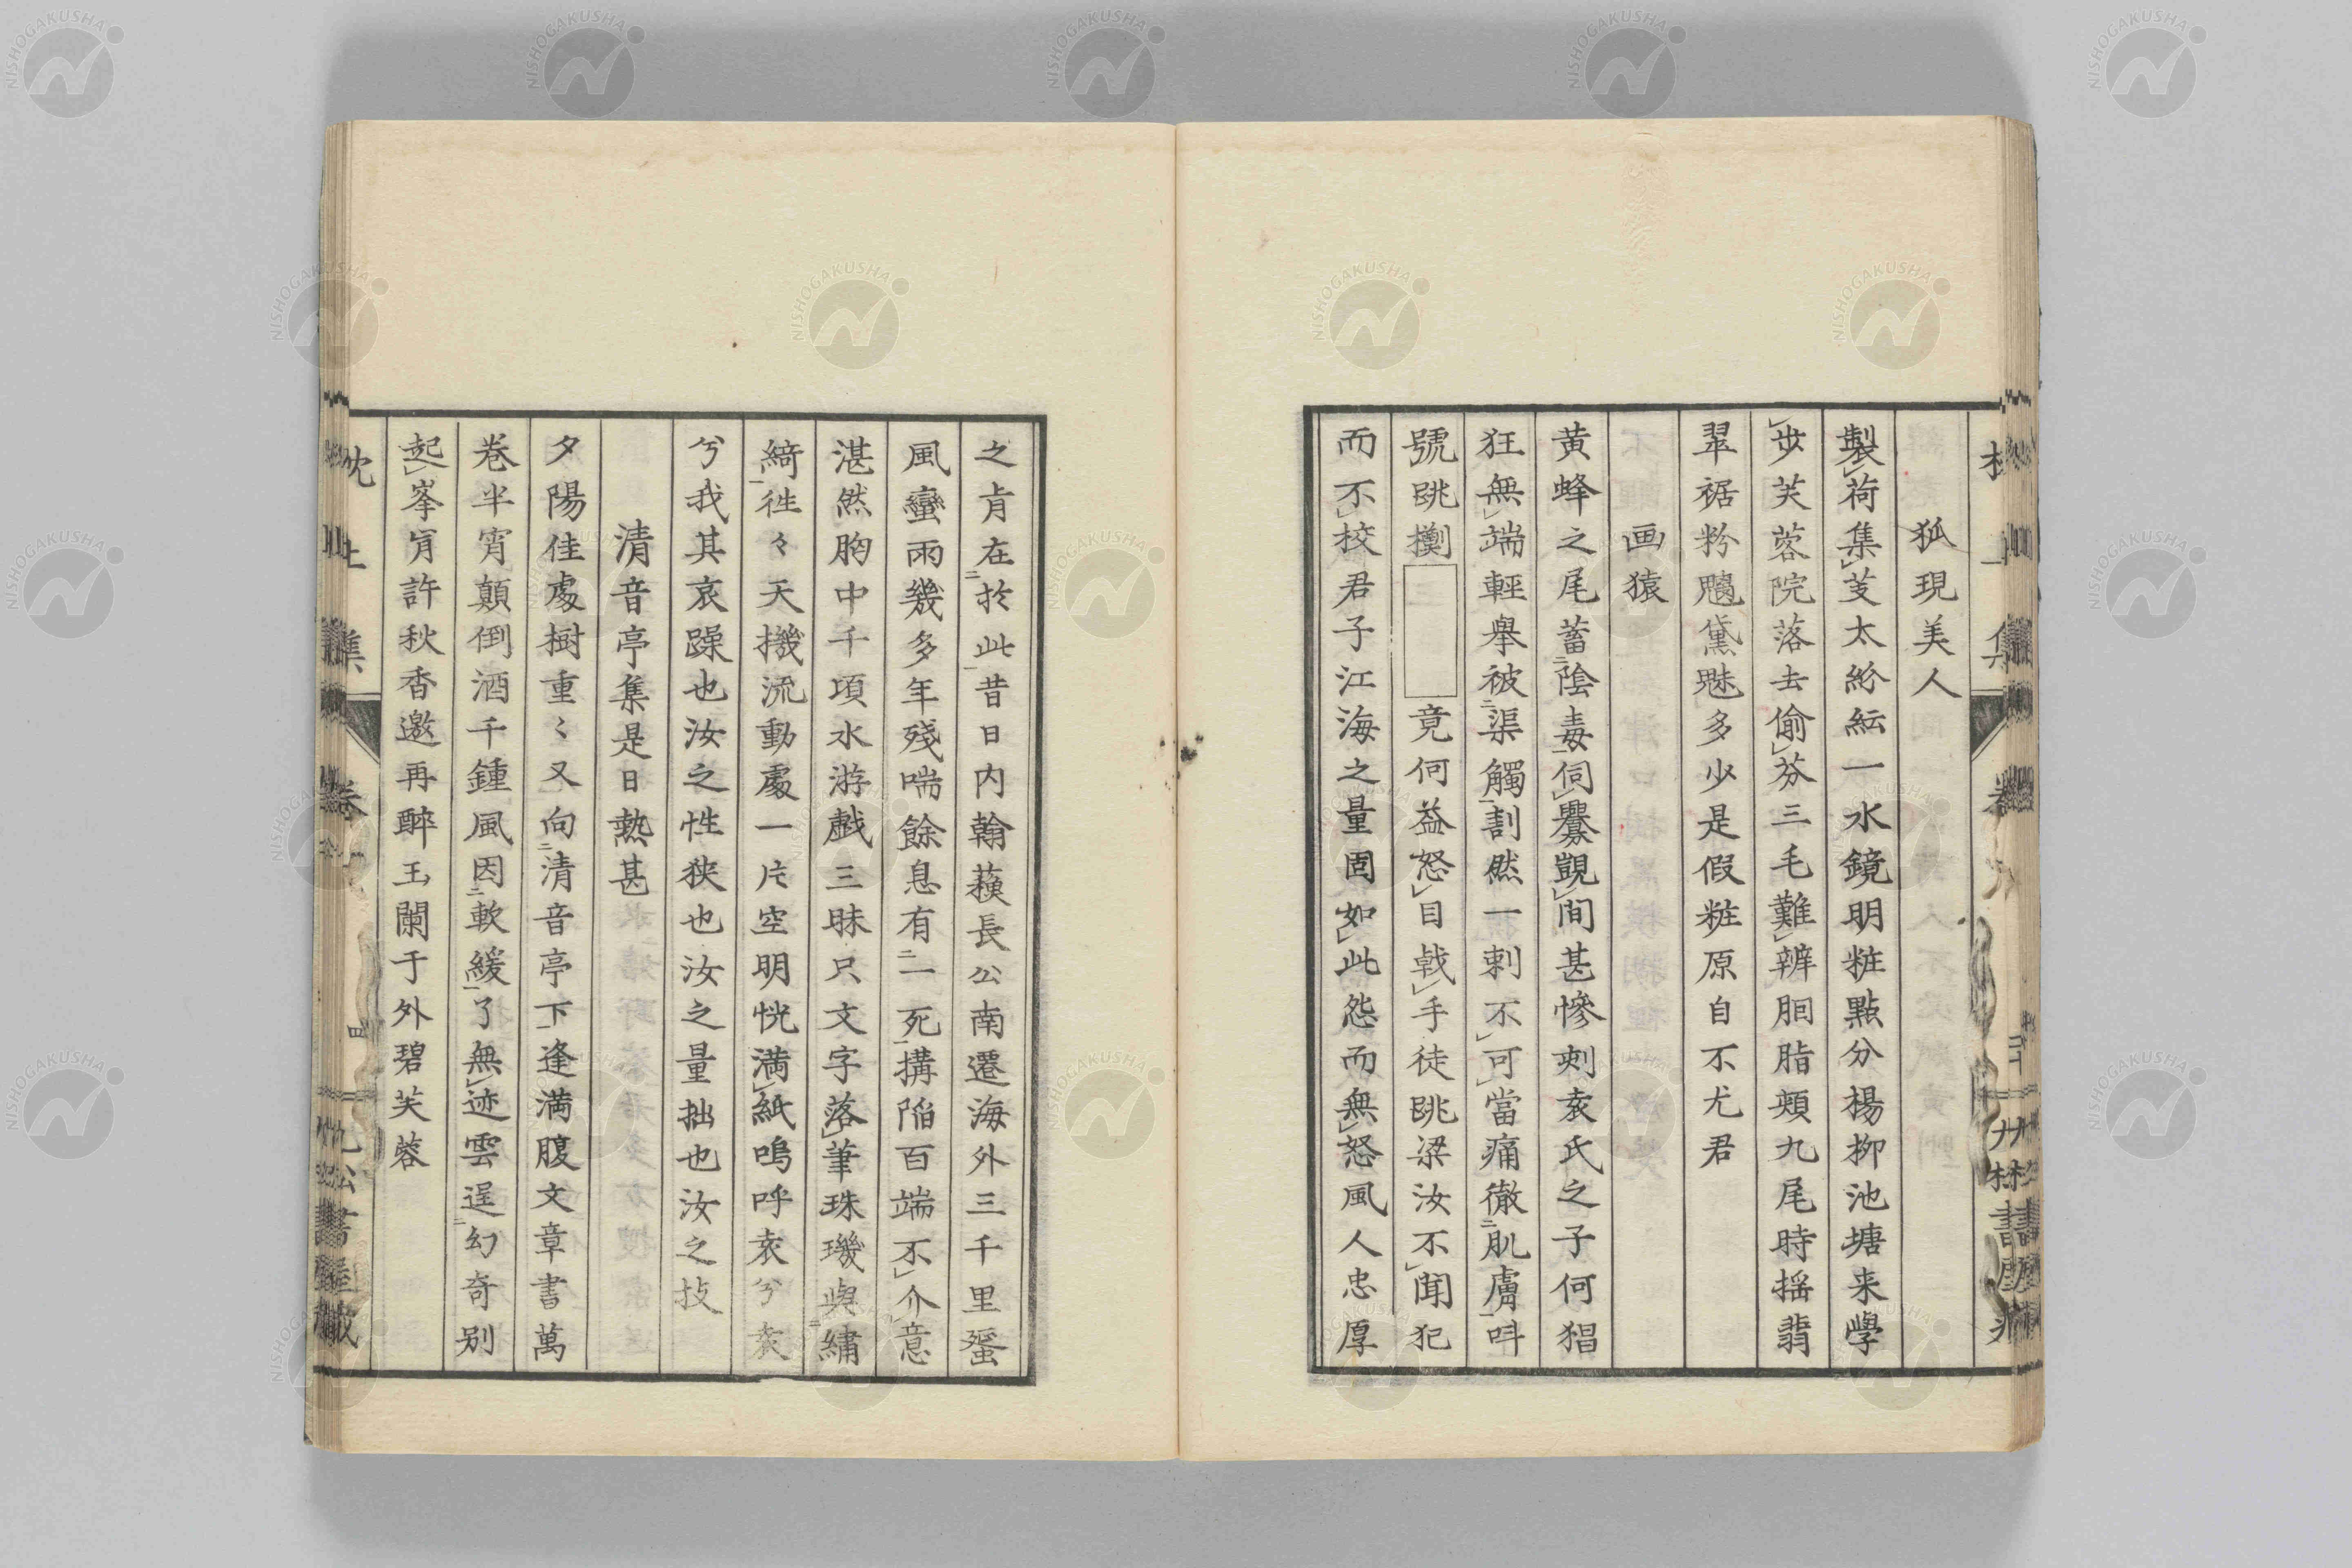 狐現美人
製荷集芰太紛紜一水鏡明粧點分楊柳池塘来學
步芙蓉院落去偷芬三毛難辨胭脂頰九尾時揺翡
翠裾粉魑黛魅多少是假粧原自不尤君
画猿
黄蜂之尾蓄陰毒伺釁覬間甚惨刺袁氏之子何猖
狂無端輕舉被渠觸割然一刺不可當痛徹肌膚叫
號跳擲竟何益怒目戟手徒跳梁汝不聞犯
而不校君子江海之量固如此怨而無怒風人忠厚
之肯在於此昔日内翰蘓長公南遷海外三千里蜑
風蠻雨幾多年殘喘餘息有一死搆陥百端不介意
湛然胸中千項水游戲三昧只文字落筆珠璣與繡
綺徃々天機流動處一片空明恍満紙嗚呼袁兮袁
兮我其哀躁也汝之性狭也汝之量拙也汝之技
清音亭集是日熱甚
夕陽佳處樹重〻又向清音亭下逢満腹文章書萬
巻半宵顛倒酒千鍾風因軟緩了無迹雲逞幻奇別
起峯肯許秋香邀再醉玉闌于外碧芙蓉
NISHOGAKUSHA